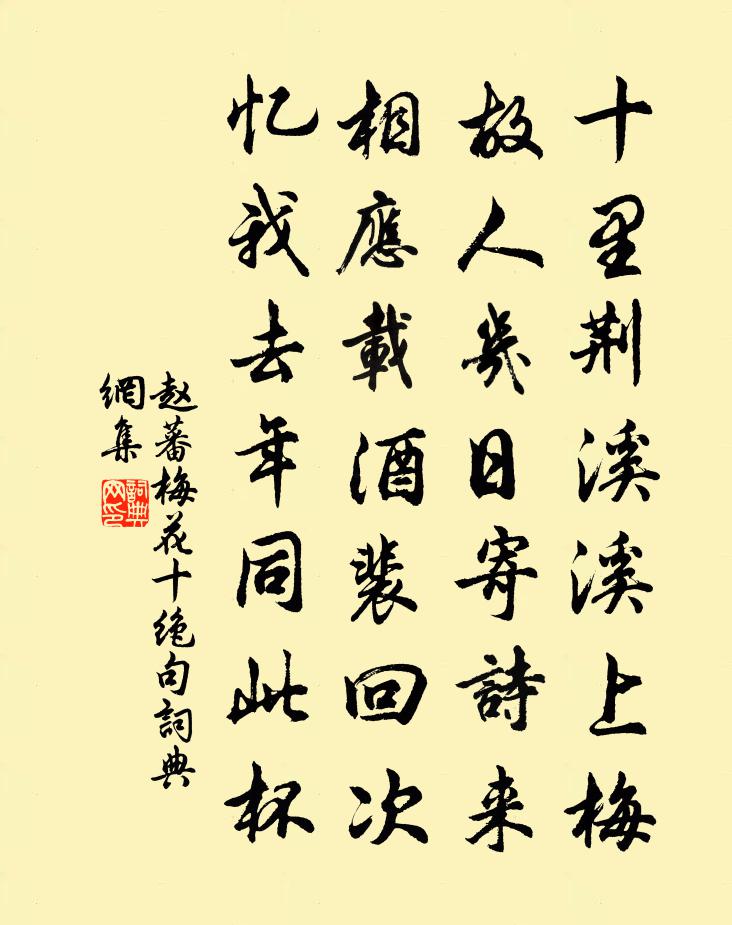 十里荆溪溪上梅
故人几日寄詩来
相應載酒裴回次
忆我去年同此杯
赵蕃梅花十绝句詞典
網集
詞典
网印